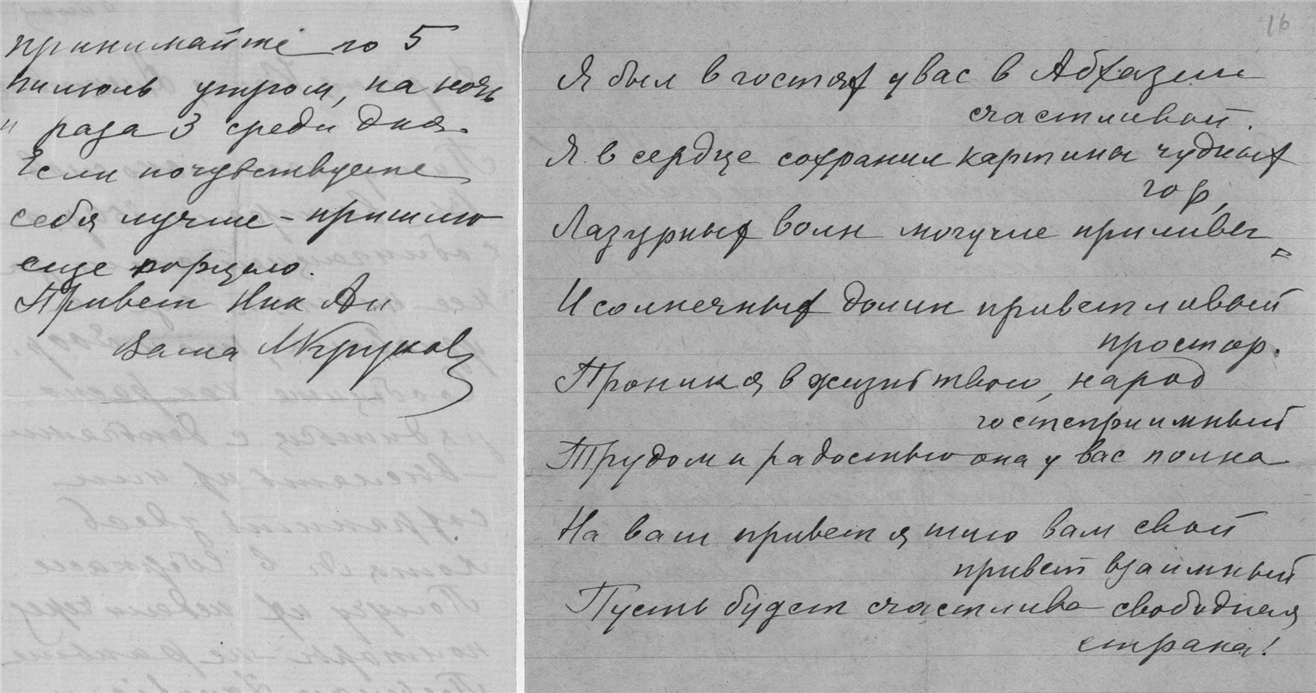 принимайте по 5
пилюль утром, на ночь
и раза 3 среди дня.
Если почувствуете
себя лучше – пришлю
еще порцию.
Привет Ник Ан
Ваша
16
Я был в гостях у вас в Абхазии
счастливой.
Я в сердце сохранил картины чудных
гор,
Лазурных волн могучие приливы
И солнечных долин приветливый
простор.
Проник я в жизнь твою, народ
гостеприимный
Трудом и радостью она у вас полна
На ваш привет я шлю вам свой
привет взаимный
Пусть будет счастлива свободная
страна!